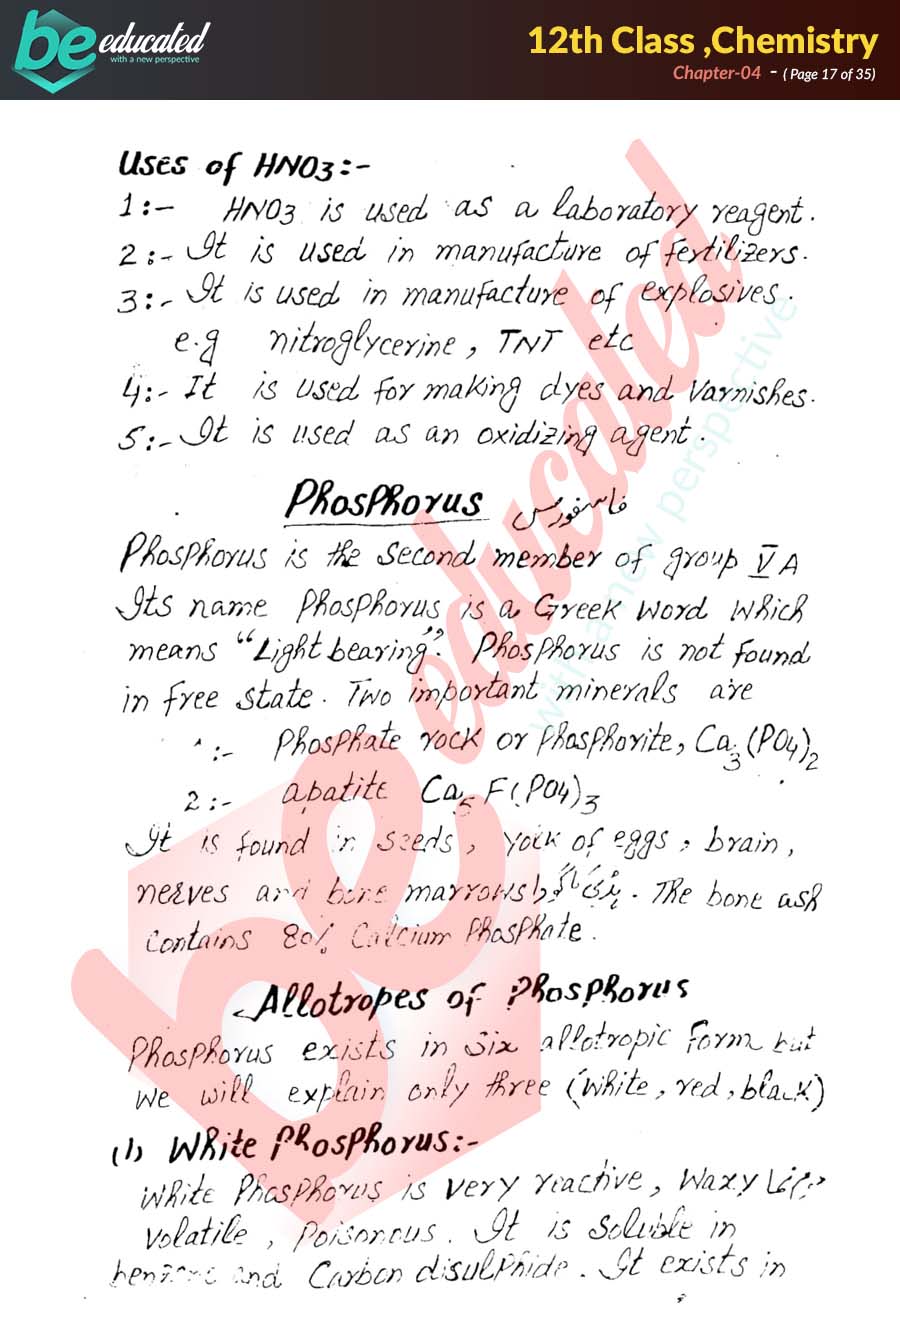 be educated
with a new perspective
12th Class ,Chemistry
Chapter-04 - ( Page 17 of 35)
Uses of HNO3:-
1:- HNO3 is used as a laboratory reagent.
2:- It is used in manufacture of fertilizers.
3:- It is used in manufacture of explosives.
e.g nitroglycerine, TNT etc
4:- It is used for making dyes and varnishes.
5:- It is used as an oxidizing agent.
Phosphorus فاسفورس
Phosphorus is the second member of group V A
Its name Phosphorus is a Greek word which
means "Light bearing". Phosphorus is not found
in free state. Two important minerals are
:- Phosphate rock or phosphorite, Ca3(PO4)2
2:- apatite Ca5F(PO4)3
It is found in seeds, yolk of eggs, brain,
nerves and bone marrows ہڈی کا گودا. The bone ash
contains 80% Calcium Phosphate.
Allotropes of Phosphorus
Phosphorus exists in six allotropic form but
we will explain only three (white, red, black)
(1) White Phosphorus:-
White Phosphorus is very reactive, waxy
volatile, Poisonous. It is soluble in
benzene and Carbon disulphide. It exists in
be educated
with a new perspective